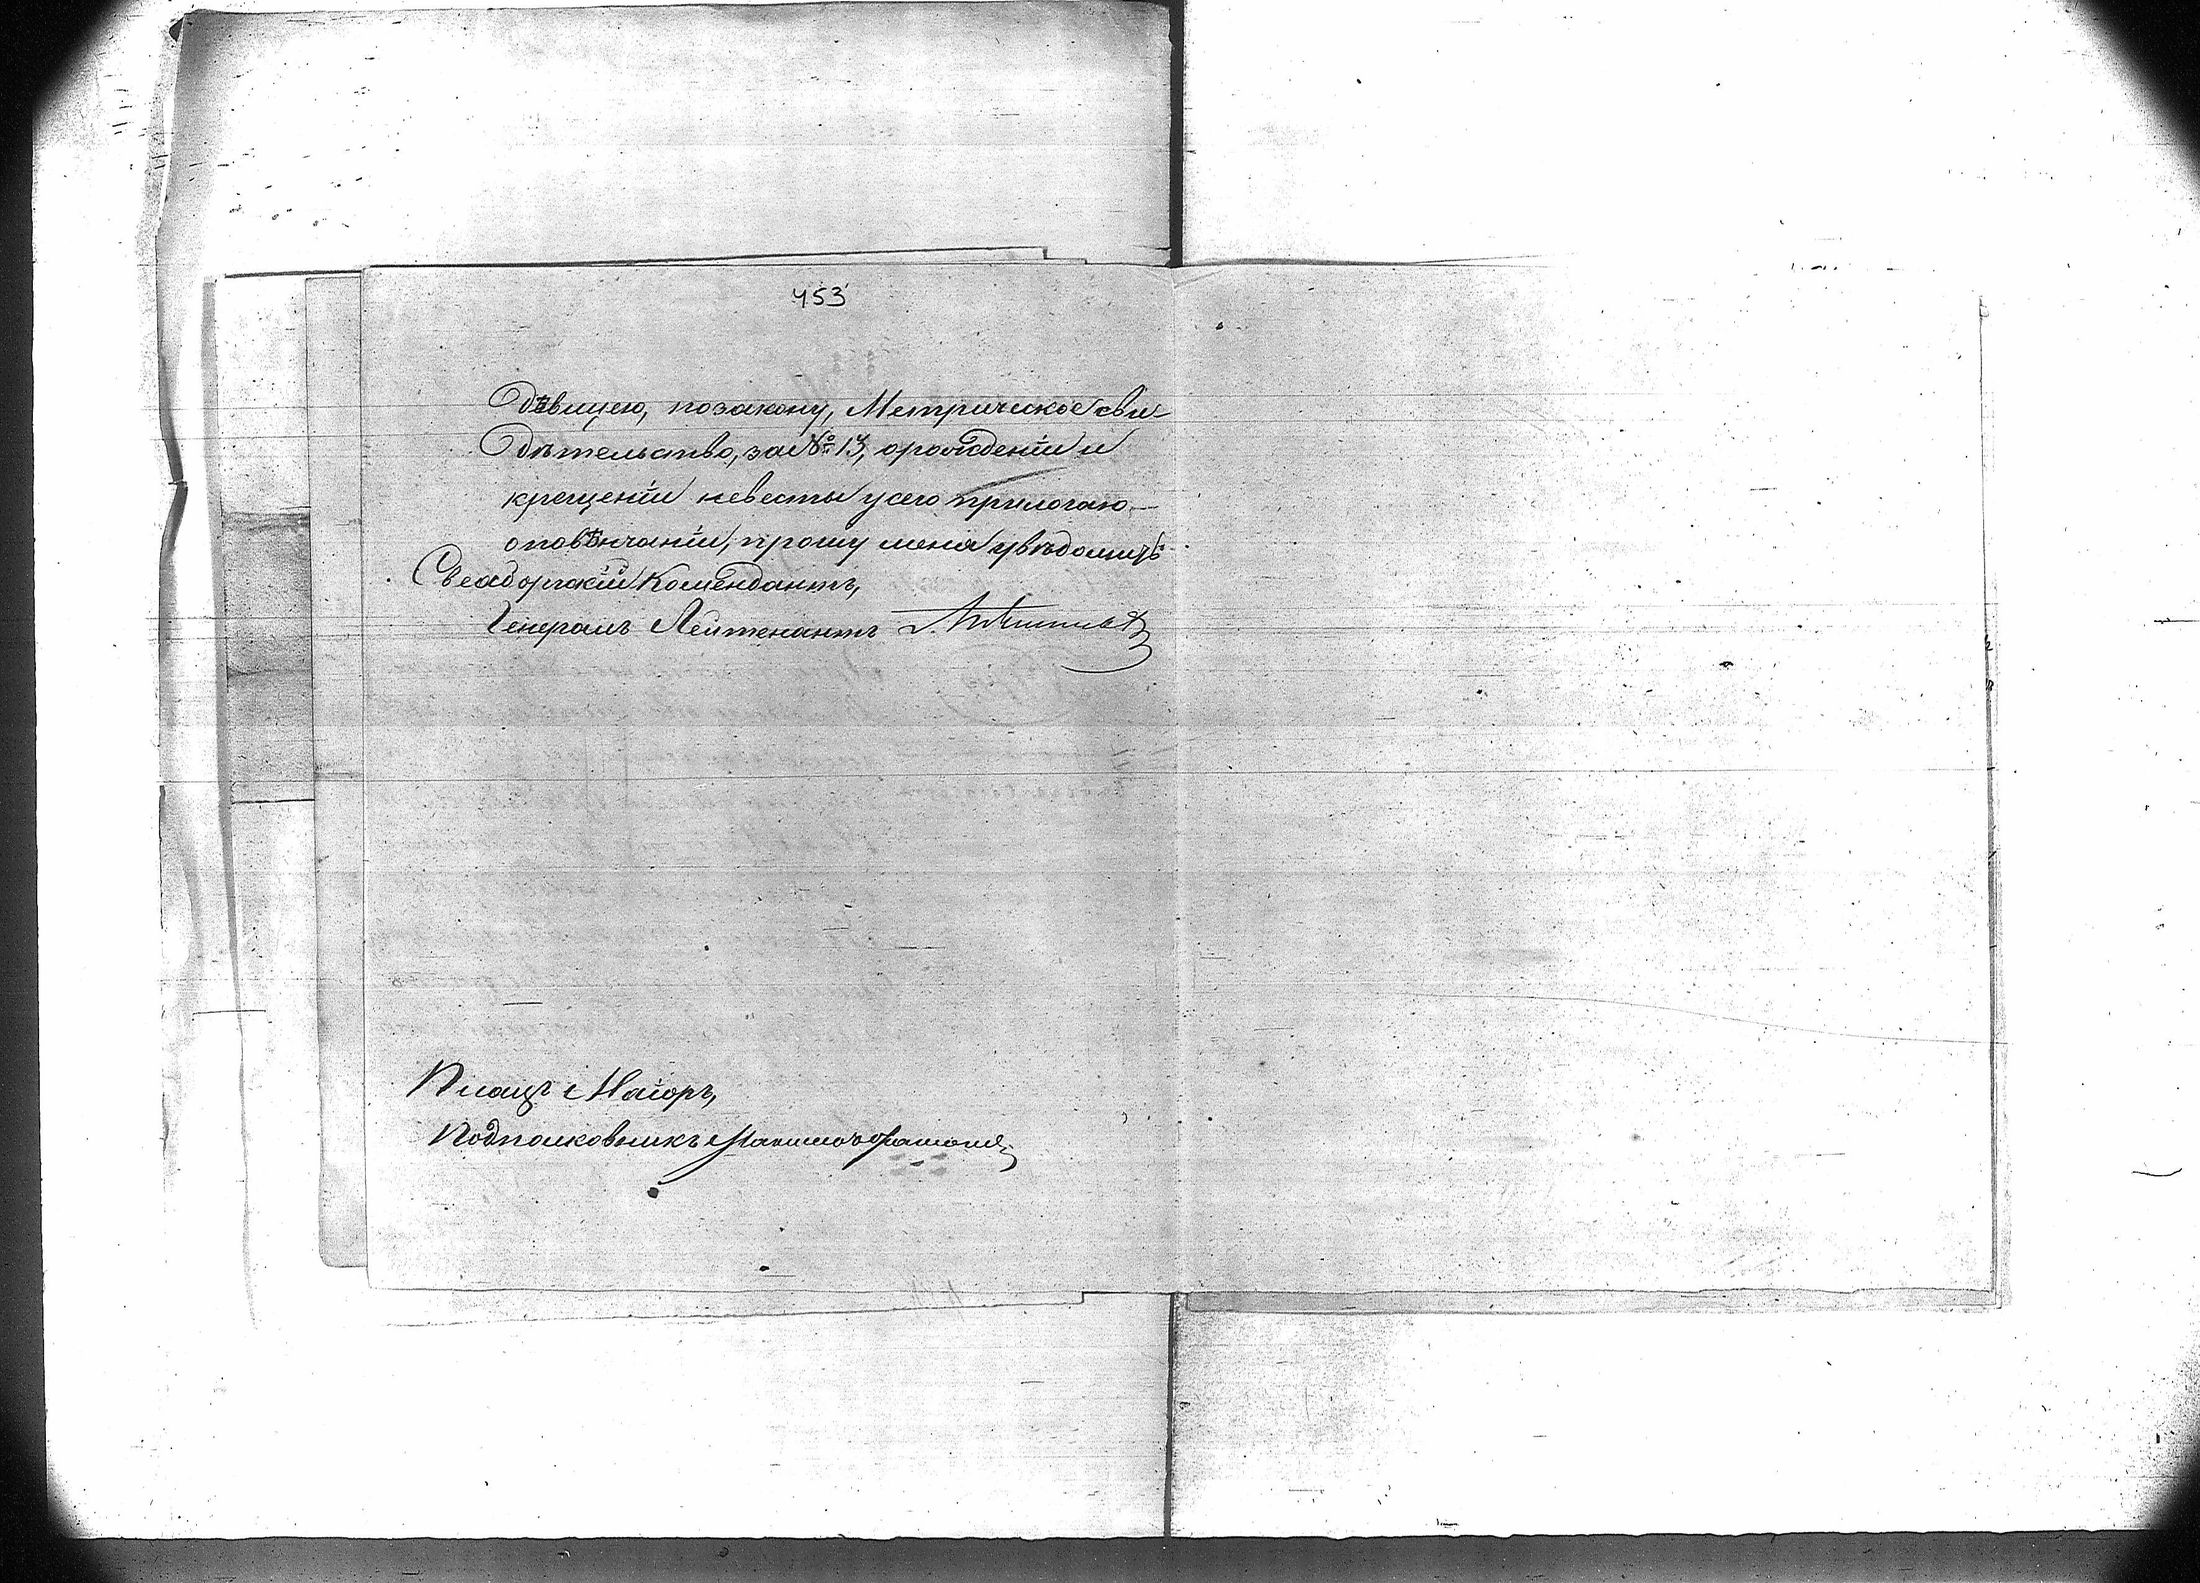 453
дѣвицею, позакону, Метрическое сви-
дѣтельство, за № 13, орождении и
крещеніи невесты усего прилогаю
оповѣнчаніи, прошу меня увѣдомить
Свеаборгскій Комендантъ,
Генералъ Лейтенантъ
Плацъ Маіоръ,
Подполковникъ